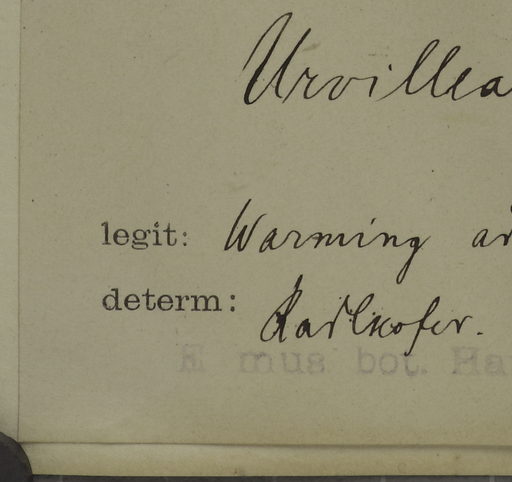 Urvillea
legit: Warming
determ: Radlkofer.
E mus bot. Ha